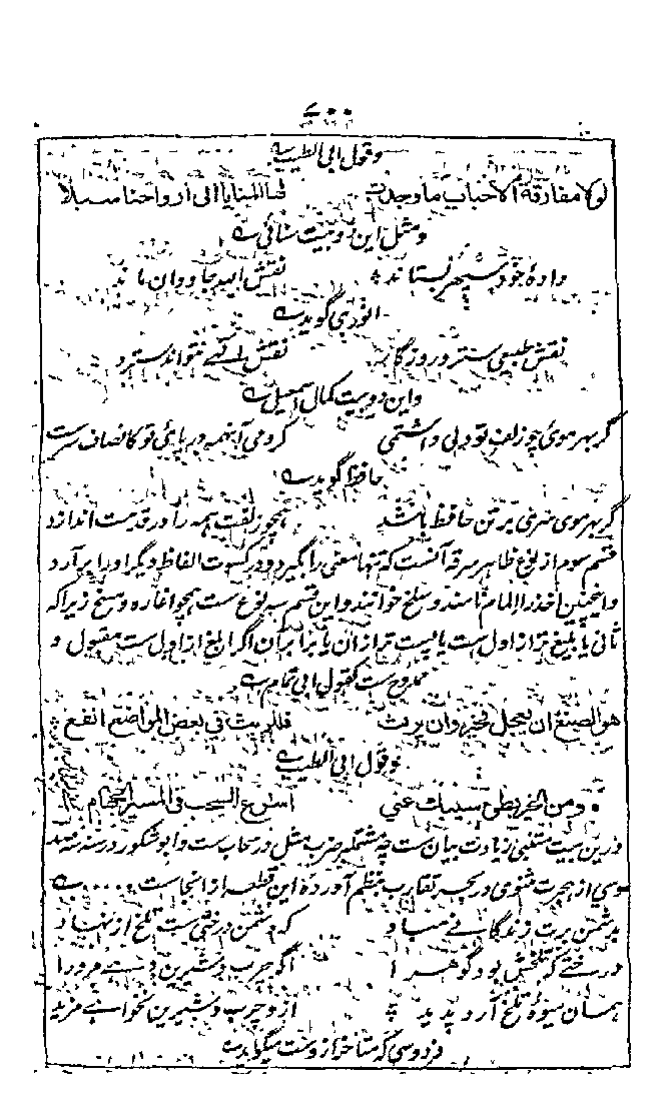 ۷۰۰
وقول ابی الطیب
لولا مفارقة الاحباب ما وجدت لها المنایا الی ارواحنا سبلا
و مثل این دو بیت سنائی
دادهٔ خود سپهر بستاند نقش الله جاودان ماند
انوری گوید
نقش طبیعی سترد روزگار نقش الٰهی نتواند سترد
و این دو بیت کمال اسمعیل
گر بهر موی چو زلف تو دلی داشتمی کردمی آنهمه در پائی تو کانصاف
حافظ گوید
گر بهر موی سری بر تن حافظ باشد همچو زلفت همه را در قدمت اندازد
قسم سوم از نوع ظاهر سرقه آنست که تنها معنی را بگیرد و در کسوت الفاظ دیگر اورا برآرد
و اینچنین اخذ را المام نامند و سلخ خوانند و این قسم سه نوع ست همچو اغاره و مسخ زیرا که
ثانی یا بلیغ تر از اول ست یا پست تر ازان یا برابر آن اگر ابلغ از اول ست مقبول و
ممدوح ست کقول ابی تمام
هو الصنع ان یعجل فخیر وان یرث فللریث فی بعض المواضع انفع
وقول ابی الطیب
ومن الخیر بطئ سیبک عنی اسرع السحب فی المسیر الجهام
درین بیت متنبی زیادت بیان ست چه مشتمل ضرب مثل در سحاب ست و ابو شکور در سنه سه صد
وسی از هجرت مثنوی در بحر تقارب بنظم آورده این قطعه از انجاست
بدشمن برت زندگانی مباد که دشمن درختی ست تلخ از نهاد
درختے که تلخش بود گوهرا اگر چرب و شیرین دهے مرورا
همان میوهٔ تلخ آرد پدید ازو چرب و شیرین نخواهے مزید
فردوسی که متاخر ازوست میگوید